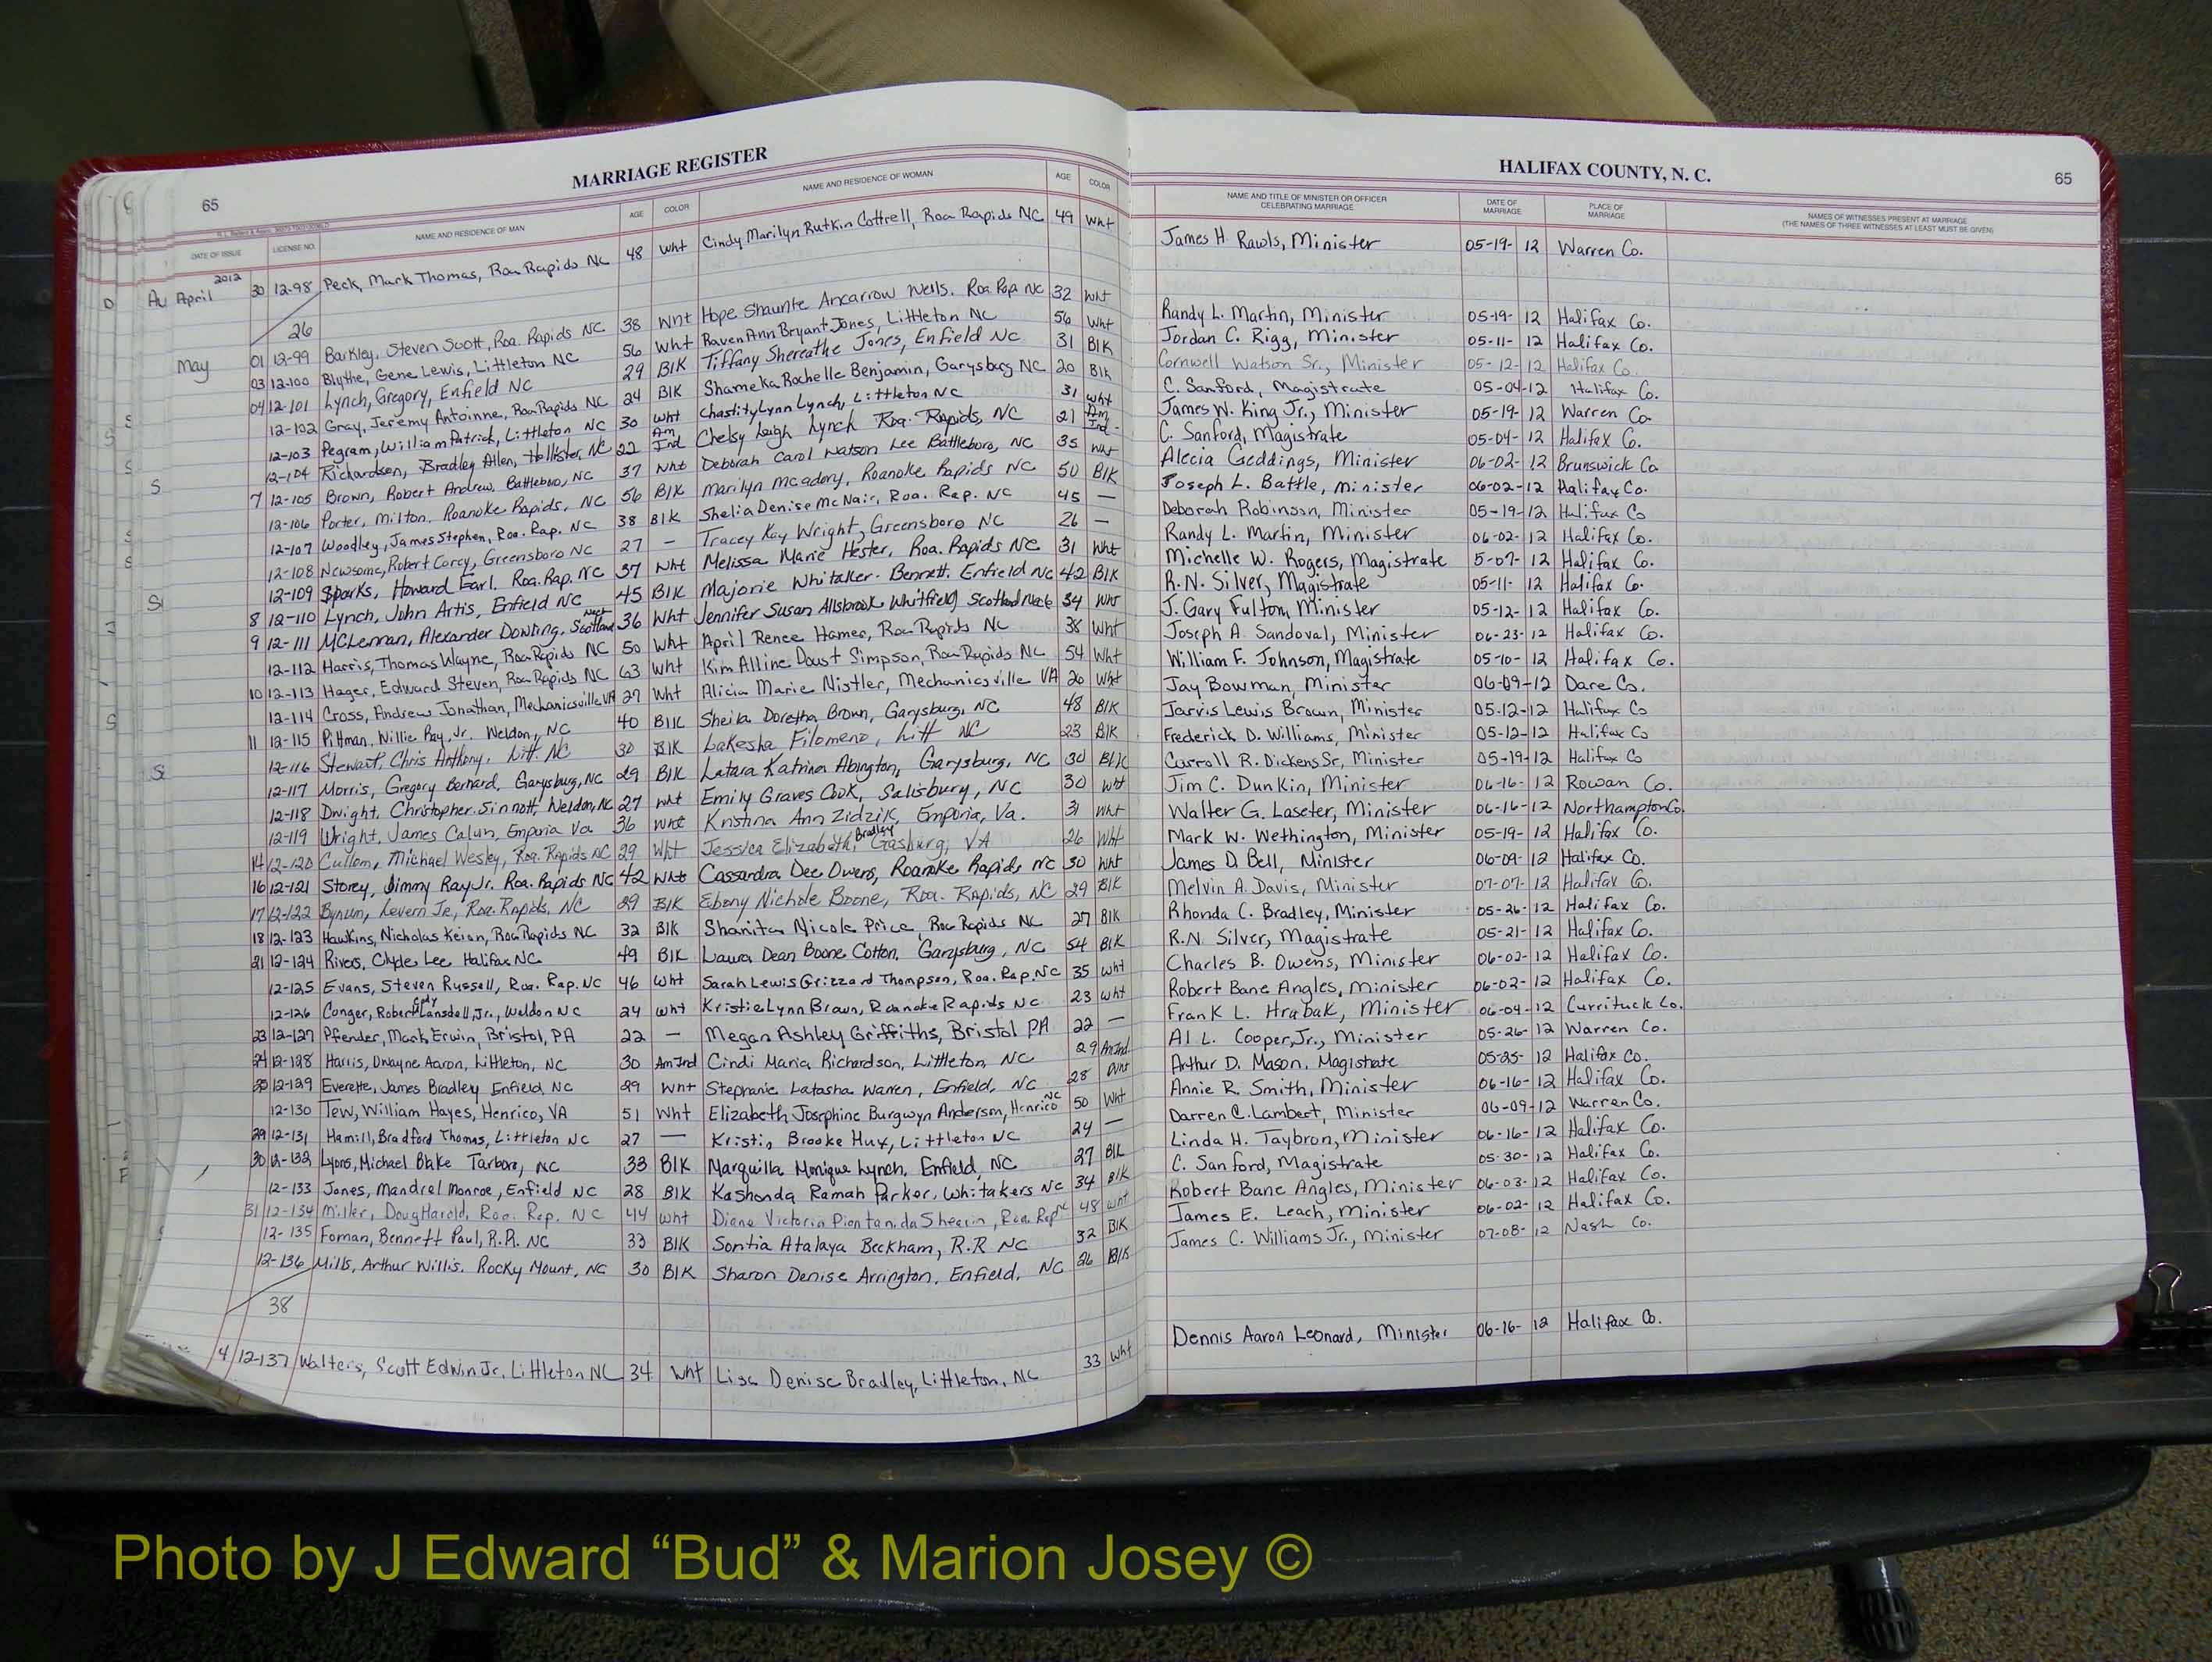 MARRIAGE REGISTER
65
DATE OF ISSUE LICENSE NO. NAME AND RESIDENCE OF MAN AGE COLOR NAME AND RESIDENCE OF WOMAN AGE COLOR
2012
April 30 12-98 Peck, Mark Thomas, Roa Rapids NC 48 Wht Cindy Marilyn Rutkin Cottrell, Roa Rapids NC 49 Wht
26
May 01 12-99 Barkley, Steven Scott, Roa. Rapids NC 38 Wht Hope Shaunte Ancarrow Wells. Roa. Rap NC 32 Wht
03 12-100 Blythe, Gene Lewis, Littleton NC 56 Wht Raven Ann Bryant Jones, Littleton NC 56 Wht
04 12-101 Lynch, Gregory, Enfield NC 29 Blk Tiffany Shereathe Jones, Enfield NC 31 Blk
12-102 Gray, Jeremy Antoinne, Roa Rapids NC 24 Blk Shameka Rochelle Benjamin, Garysburg NC 20 Blk
12-103 Pegram, William Patrick, Littleton NC 30 Wht Chastity Lynn Lynch, Littleton NC 31 Wht
12-104 Richardson, Bradley Allen, Hollister, NC 22 Am Ind Chelsy Leigh Lynch Roa. Rapids, NC 21 Am Ind.
7 12-105 Brown, Robert Andrew. Battleboro, NC 37 Wht Deborah Carol Watson Lee Battleboro, NC 35 Wht
12-106 Porter, Milton. Roanoke Rapids, NC 56 Blk Marilyn McAdory, Roanoke Rapids NC 50 Blk
12-107 Woodley, James Stephen, Roa. Rap. NC 38 Blk Shelia Denise McNair, Roa. Rap. NC 45 —
12-108 Newsome, Robert Corey, Greensboro NC 27 — Tracey Kay Wright, Greensboro NC 26 —
12-109 Sparks, Howard Earl. Roa. Rap. NC 37 Wht Melissa Marie Hester, Roa. Rapids NC 31 Wht
8 12-110 Lynch, John Artis, Enfield NC 45 Blk Majorie Whitaker-Bennett. Enfield NC 42 Blk
9 12-111 McLennan, Alexander Dowling, Scotland Neck 36 Wht Jennifer Susan Allsbrook Whitfield Scotland Neck 34 Wht
12-112 Harris, Thomas Wayne, Roa Rapids NC 50 Wht April Renee Hamer, Roa Rapids NC 38 Wht
10 12-113 Hager, Edward Steven, Roa Rapids NC 63 Wht Kim Alline Doust Simpson, Roa Rapids NC 54 Wht
12-114 Cross, Andrew Jonathan, Mechanicsville VA 27 Wht Alicia Marie Nistler, Mechanicsville VA 26 Wht
11 12-115 Pittman, Willie Ray, Jr. Weldon, NC 40 Blk Sheila Doretha Brown, Garysburg, NC 48 Blk
12-116 Stewart, Chris Anthony, Litt. NC 30 Blk Lakesha Filomeno, Litt NC 23 Blk
12-117 Morris, Gregory Bernard, Garysburg, NC 29 Blk Latara Katrina Abington, Garysburg, NC 30 Blk
12-118 Dwight, Christopher Sinnott, Weldon, NC 27 Wht Emily Graves Cook, Salisbury, NC 30 Wht
12-119 Wright, James Calvin, Emporia Va 36 Wht Kristina Ann Zidzik, Emporia, Va. 31 Wht
14 12-120 Cullom, Michael Wesley, Roa. Rapids NC 29 Wht Jessica Elizabeth Bradley, Gasburg, VA 26 Wht
16 12-121 Storey, Jimmy Ray Jr. Roa. Rapids NC 42 Wht Cassandra Dee Owens, Roanoke Rapids NC 30 Wht
17 12-122 Bynum, Levern Jr, Roa. Rapids, NC 29 Blk Ebony Nichole Boone, Roa. Rapids, NC 29 Blk
18 12-123 Hawkins, Nicholas Keion, Roa Rapids NC 32 Blk Shanita Nicole Price, Roa Rapids NC 27 Blk
21 12-124 Rivers, Clyde Lee Halifax NC 49 Blk Laura Dean Boone Cotton, Garysburg, NC 54 Blk
12-125 Evans, Steven Russell, Roa. Rap. NC 46 Wht Sarah Lewis Grizzard Thompson, Roa. Rap. NC 35 Wht
12-126 Conger, Robert Lansdell, Jr., Weldon NC 24 Wht Kristia Lynn Brown, Roanoke Rapids NC 23 Wht
23 12-127 Pfender, Mark Erwin, Bristol, PA 22 — Megan Ashley Griffiths, Bristol PA 22 —
24 12-128 Harris, Dwayne Aaron, Littleton, NC 30 Am Ind Cindi Maria Richardson, Littleton, NC 29 Am Ind
25 12-129 Everette, James Bradley Enfield, NC 29 Wht Stephanie Latasha Warren, Enfield, NC 28 Wht
12-130 Tew, William Hayes, Henrico, VA 51 Wht Elizabeth Josephine Burgwyn Anderson, Henrico NC 50 Wht
29 12-131 Hamill, Bradford Thomas, Littleton NC 27 — Kristin Brooke Hux, Littleton NC 24 —
30 12-132 Lyons, Michael Blake Tarboro, NC 33 Blk Marquilla Monique Lynch, Enfield, NC 27 Blk
12-133 Jones, Mandrel Monroe, Enfield NC 28 Blk Kashonda Ramah Parker, Whitakers NC 34 Blk
31 12-134 Miller, Doug Harold, Roa. Rap. NC 44 Wht Diane Victoria Piontanida Shearin, Roa. Rap NC 48 Wht
12-135 Foman, Bennett Paul, R.R. NC 33 Blk Sontia Atalaya Beckham, R.R NC 32 Blk
12-136 Mills, Arthur Willis. Rocky Mount, NC 30 Blk Sharon Denise Arrington, Enfield, NC 26 Blk
38
4 12-137 Walters, Scott Edwin Jr. Littleton NC 34 Wht Lisa Denise Bradley, Littleton, NC 33 Wht
HALIFAX COUNTY, N. C.
65
NAME AND TITLE OF MINISTER OR OFFICER CELEBRATING MARRIAGE DATE OF MARRIAGE PLACE OF MARRIAGE NAMES OF WITNESSES PRESENT AT MARRIAGE
(THE NAMES OF THREE WITNESSES AT LEAST MUST BE GIVEN)
James H. Rawls, Minister 05-19-12 Warren Co.
Randy L. Martin, Minister 05-19-12 Halifax Co.
Jordan C. Rigg, Minister 05-11-12 Halifax Co.
Cornwell Watson Sr., Minister 05-12-12 Halifax Co.
C. Sanford, Magistrate 05-04-12 Halifax Co.
James W. King Jr., Minister 05-19-12 Warren Co.
C. Sanford, Magistrate 05-04-12 Halifax Co.
Alecia Geddings, Minister 06-02-12 Brunswick Co
Joseph L. Battle, Minister 06-02-12 Halifax Co.
Deborah Robinson, Minister 05-19-12 Halifax Co
Randy L. Martin, Minister 06-02-12 Halifax Co.
Michelle W. Rogers, Magistrate 5-07-12 Halifax Co.
R.N. Silver, Magistrate 05-11-12 Halifax Co.
J. Gary Fulton, Minister 05-12-12 Halifax Co.
Joseph A. Sandoval, Minister 06-23-12 Halifax Co.
William F. Johnson, Magistrate 05-10-12 Halifax Co.
Jay Bowman, Minister 06-09-12 Dare Co.
Jarvis Lewis Brown, Minister 05-12-12 Halifax Co
Frederick D. Williams, Minister 05-12-12 Halifax Co
Carroll R. Dickens Sr, Minister 05-19-12 Halifax Co
Jim C. Dunkin, Minister 06-16-12 Rowan Co.
Walter G. Laseter, Minister 06-16-12 Northampton Co.
Mark W. Wethington, Minister 05-19-12 Halifax Co.
James D. Bell, Minister 06-09-12 Halifax Co.
Melvin A. Davis, Minister 07-07-12 Halifax Co.
Rhonda C. Bradley, Minister 05-26-12 Halifax Co.
R.N. Silver, Magistrate 05-21-12 Halifax Co.
Charles B. Owens, Minister 06-02-12 Halifax Co.
Robert Bane Angles, Minister 06-02-12 Halifax Co.
Frank L. Hrabak, Minister 06-04-12 Currituck Co.
Al L. Cooper, Jr., Minister 05-26-12 Warren Co.
Arthur D. Mason, Magistrate 05-25-12 Halifax Co.
Annie R. Smith, Minister 06-16-12 Halifax Co.
Darren C. Lambert, Minister 06-09-12 Warren Co.
Linda H. Taybron, Minister 06-16-12 Halifax Co.
C. Sanford, Magistrate 05-30-12 Halifax Co.
Robert Bane Angles, Minister 06-03-12 Halifax Co.
James E. Leach, Minister 06-02-12 Halifax Co.
James C. Williams Jr., Minister 07-08-12 Nash Co.
Dennis Aaron Leonard, Minister 06-16-12 Halifax Co.
Photo by J Edward “Bud” & Marion Josey ©